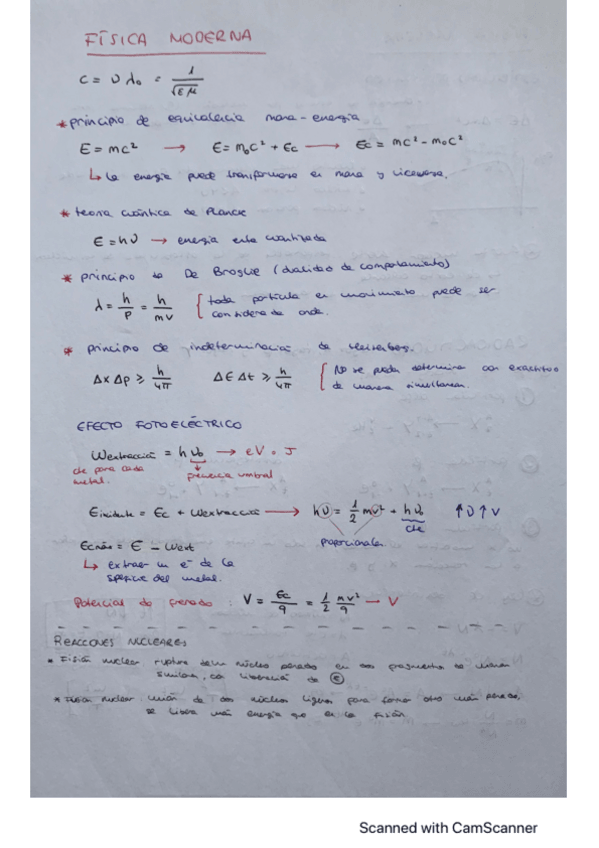 FÍSICA MODERNA
c = υ λ₀ = 1/√εμ
* principio de equivalencia masa-energía
E = mc² → E = m₀c² + Ec → Ec = mc² - m₀c²
↳ La energía puede transformarse en masa y viceversa.
* teoria cuántica de Planck
E = hυ → energia esta cuantizada
* principio de De Broglie (dualidad de comportamiento)
λ = h/p = h/mv { toda partícula en movimiento puede ser
considerada onda.
* principio de indeterminación de Heisenberg.
Δx Δp ≥ h/4π ΔE Δt ≥ h/4π { No se puede determinar con exactitud
de manera simultanea.
EFECTO FOTOELÉCTRICO
Wextracción = h υ₀ → eV = J
cte para cada
metal.
frecuencia umbral
Eincidente = Ec + Wextracción → hυ = 1/2 mv² + hυ₀ ↑υ↑v
cte
proporcionales
Ecmáx = E - Wext
↳ extraer un e⁻ de la
superficie del metal.
Potencial de frenado : V = Ec/q = 1/2 mv²/q → V
REACCIONES NUCLEARES
* Fisión nuclear ruptura de un núcleo pesado en dos fragmentos de masa
similar, con liberación de E
* Fusión nuclear unión de dos núcleos ligeros para formar otro más pesado,
se libera más energía que en la fisión.
Scanned with CamScanner